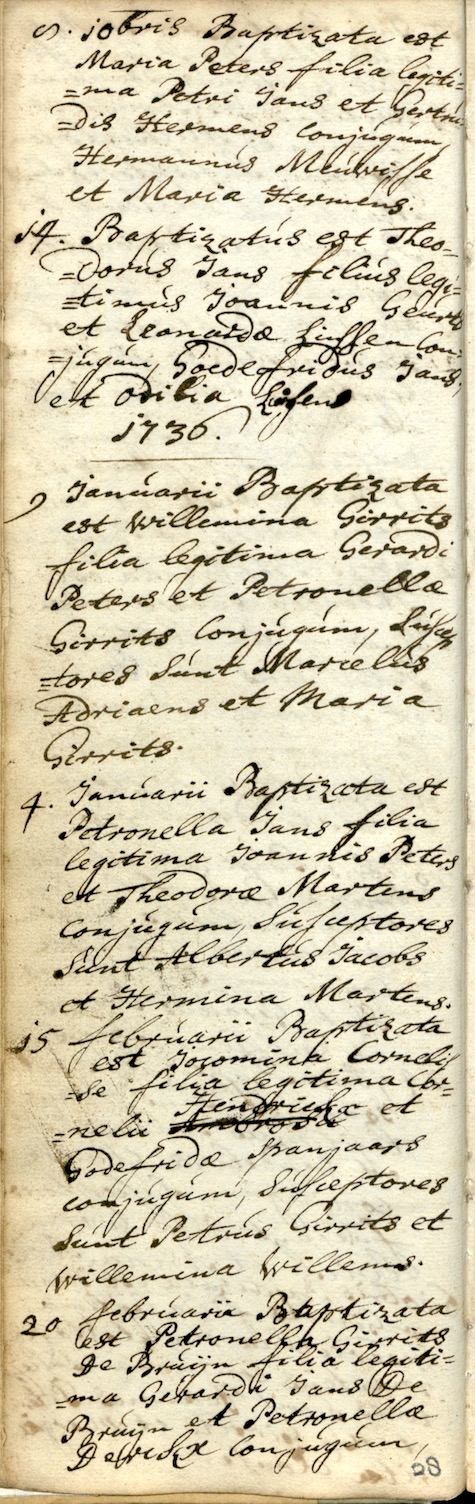 8. 10bris Baptizata est
Maria Peters filia legiti=
=ma Petri Jans et Gertru
=dis Hermens Conjugum,
Hermannus Meuwisse
et Maria Hermens.
14. Baptizatus est Theo=
=dorus Jans filius legi=
=timus Joannis Geurts
et Leonardæ Lussen Con=
=jugum, Goedefridus Jans,
et Odilia
1736.
9 Januarii Baptizata
est Willemina Girrits
filia legitima Gerardi
Peters et Petronellæ
Girrits Conjugum, Suscep
=tores Sunt Marcelus
Adriaens et Maria
Girrits.
4. Januarii Baptizata est
Petronella Jans filia
legitima Joannis Peters
et Theodoræ Martens
Conjugum, Susceptores
Sunt Albertus Jacobs
et Hermina Martens.
15 februarii Baptizata
est Jocomina Cornelis
=se filia legitima Cor=
Hendrickx
=nelii Ambrosii et
Godefridæ Spanjaars
conjugum, Susceptores
Sunt Petrus Girrits et
Willemina Willems.
20 februarii Baptizata
est Petronella Girrits
De Bruijn filia legiti=
=ma Gerardi Jans De
Bruijn et Petronellæ
Derckx Conjugum,
28